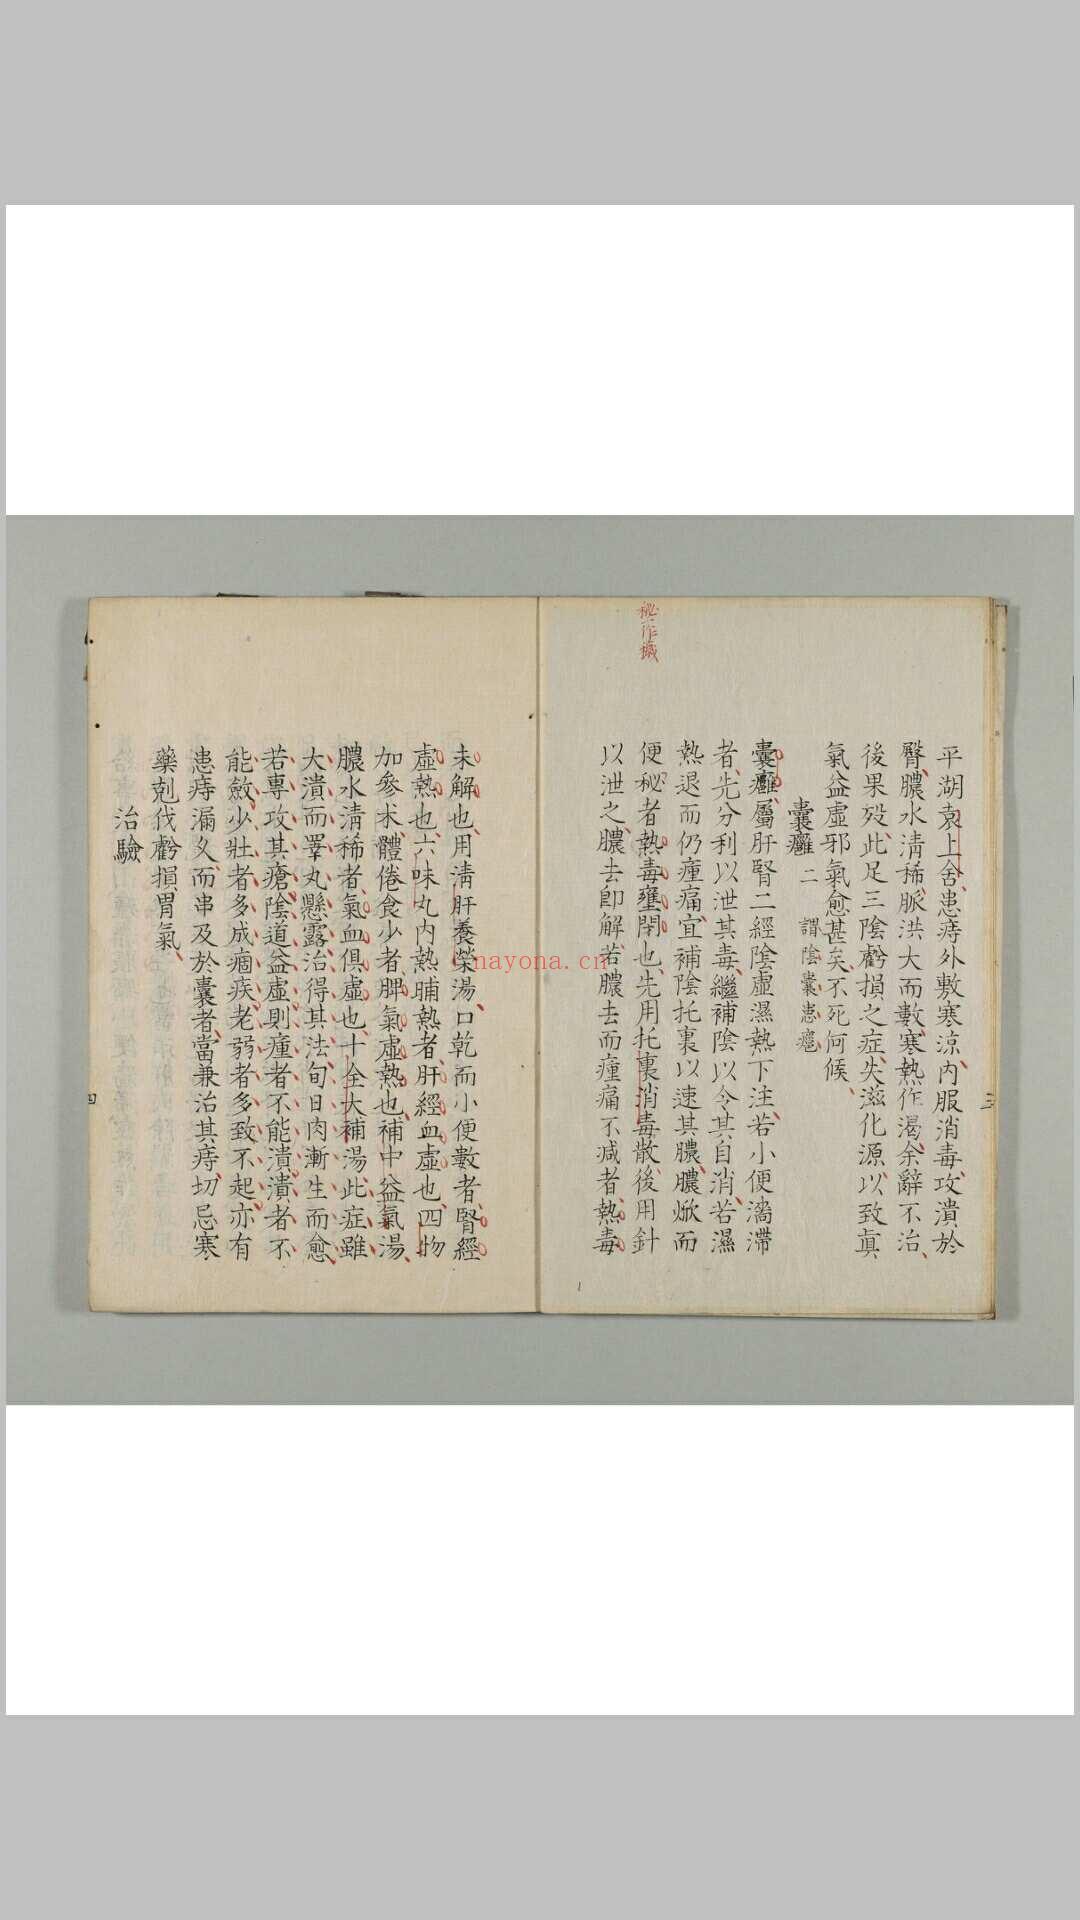 秘作
平湖袁上舍患痔外敷寒涼內服消毒攻潰於
臀膿水清稀脈洪大而數寒熱作渴余辭不治
後果歿此足三陰虧損之症失滋化源以致真
氣益虛邪氣愈甚矣不死何候
囊癰二 謂陰囊患癰
囊癰屬肝腎二經陰虛濕熱下注若小便濇滯
者先分利以泄其毒繼補陰以令其自消若濕
熱退而仍瘇痛宜補陰托裏以速其膿膿焮而
便秘者熱毒壅閉也先用托裏消毒散後用針
以泄之膿去即解若膿去而瘇痛不減者熱毒
三
未解也用清肝養榮湯口乾而小便數者腎經
虛熱也六味丸內熱晡熱者肝經血虛也四物
加參朮體倦食少者脾氣虛熱也補中益氣湯
膿水清稀者氣血俱虛也十全大補湯此症雖
大潰而睪丸懸露治得其法旬日肉漸生而愈
若專攻其瘡陰道益虛則瘇者不能潰潰者不
能斂少壯者多成痼疾老弱者多致不起亦有
患痔漏久而串及於囊者當兼治其痔切忌寒
藥剋伐虧損胃氣
治驗
四
nayona.cn